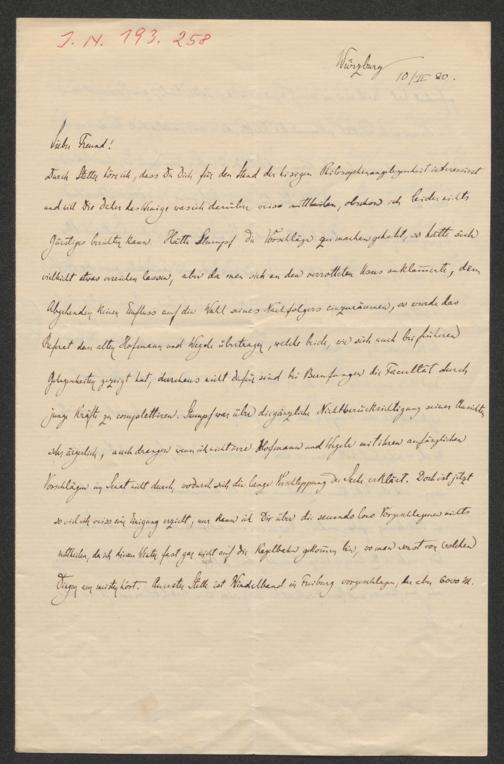 J. N. 193.258
Würzburg
10/II 80.
Lieber Freund!
Durch Stetter höre ich, dass Du Dich für den Stand der hiesigen Philosophenangelegenheit interessirst
und will Dir daher das Wenige was ich darüber weiss mittheilen, obschon ich leider nichts
Günstiges berichten kann. Hätte Stumpf die Vorschläge zu machen gehabt, so hätte sich
vielleicht etwas erreichen lassen, aber da man sich an den verrotteten Usus anklammerte, dem
Abgehenden keinen Einfluss auf die Wahl seines Nachfolgers einzuräumen, so wurde das
Referat dem alten Hofmann und Wegele übertragen, welche beide, wie sich auch bei früheren
Gelegenheiten gezeigt hat, durchaus nicht dafür sind bei Berufungen die Facultät durch
junge Kräfte zu completiren. Stumpf war über die gänzliche Nichtberücksichtigung seiner Ansichten
sehr ärgerlich, auch drangen wenn ich nicht irre Hofmann und Wegele mit ihren anfänglichen
Vorschlägen im Senat nicht durch, wodurch sich die lange Verschleppung der Sache erklärt. Doch ist jetzt
so viel ich weiss eine Einigung erzielt, nur kann ich Dir über die secundo loco Vorgeschlagenen nichts
mittheilen, da ich diesen Winter fast gar nicht auf die Kegelbahn gekommen bin, wo man sonst von solchen
Dingen am meisten hört. An erster Stelle ist Windelband in Freiburg vorgeschlagen, der aber 6000 M.